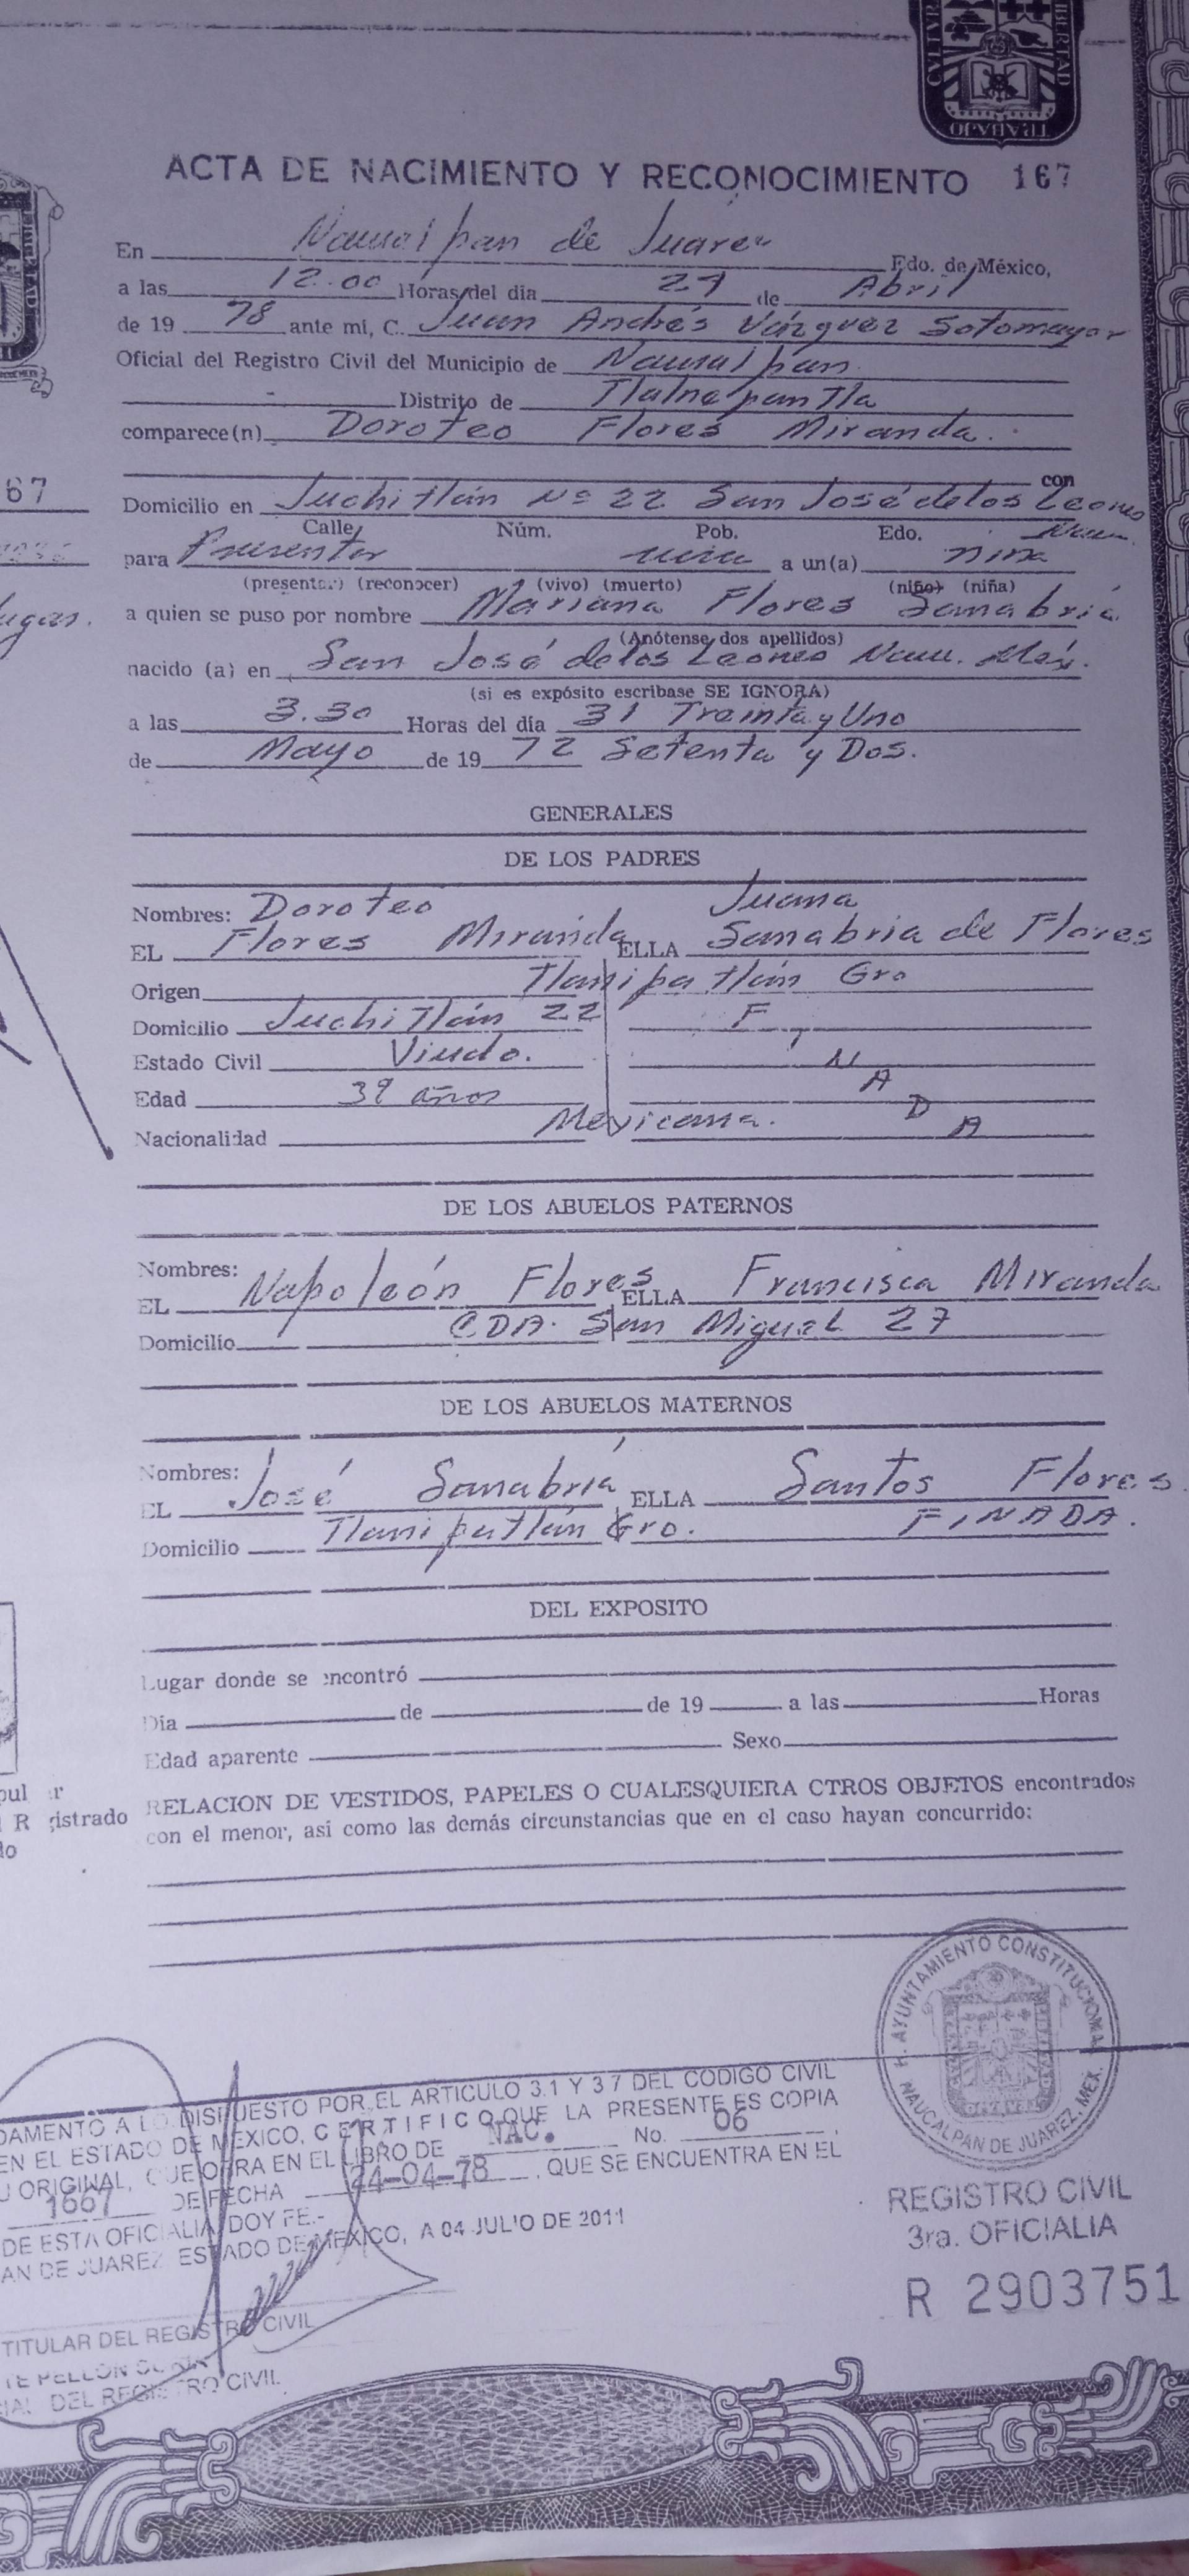 CVLTVRA
LIBERTAD
TRABAJO
ACTA DE NACIMIENTO Y RECONOCIMIENTO 167
En Naucalpan de Juarez Edo. de México,
a las 12.00 Horas del día 24 de Abril
de 19 78 ante mi, C. Juan Andrés Vázquez Sotomayor
Oficial del Registro Civil del Municipio de Naucalpan.
- Distrito de Tlalnepantla
comparece(n) Doroteo Flores Miranda.
con
67
Domicilio en Juchitlán Nº 22 San José de los Leones
Calle Núm. Pob. Edo. Nau.
para Presentar viva a un(a) niña
(presentar) (reconocer) (vivo) (muerto) (niño) (niña)
a quien se puso por nombre Mariana Flores Sanabria
(Anótense dos apellidos)
nacido (a) en San José de los Leones Nau. Méx.
(si es expósito escribase SE IGNORA)
a las 3.30 Horas del día 31 Treinta y Uno
de Mayo de 19 72 Setenta y Dos.
GENERALES
DE LOS PADRES
Nombres: Doroteo Juana
EL Flores Miranda ELLA Sanabria de Flores
Origen Tlanipatlán Gro
Domicilio Juchitlán 22 F
Estado Civil Viudo. I N
Edad 39 años A D
Nacionalidad Mexicana. A
DE LOS ABUELOS PATERNOS
Nombres:
EL Napoleón Flores ELLA Francisca Miranda
Domicilio CDA. San Miguel 27
DE LOS ABUELOS MATERNOS
Nombres:
EL José Sanabria ELLA Santos Flores.
Domicilio Tlanipatlán Gro. FINADA.
DEL EXPOSITO
Lugar donde se encontró
Día de de 19 a las Horas
Edad aparente Sexo
RELACION DE VESTIDOS, PAPELES O CUALESQUIERA OTROS OBJETOS encontrados
con el menor, asi como las demás circunstancias que en el caso hayan concurrido:
H. AYUNTAMIENTO CONSTITUCIONAL
NAUCALPAN DE JUAREZ, MEX.
DAMENTO A LO DISPUESTO POR EL ARTICULO 3.1 Y 3.7 DEL CODIGO CIVIL
EN EL ESTADO DE MEXICO, CERTIFICO QUE LA PRESENTE ES COPIA
U ORIGINAL, QUE OBRA EN EL LIBRO DE NAC. No. 06
1667 DE FECHA 24-04-78, QUE SE ENCUENTRA EN EL
DE ESTA OFICIALIA, DOY FE.-
AN DE JUAREZ, ESTADO DE MEXICO, A 04 JULIO DE 2011
TITULAR DEL REGISTRO CIVIL
DEL REGISTRO CIVIL
REGISTRO CIVIL
3ra. OFICIALIA
R 2903751